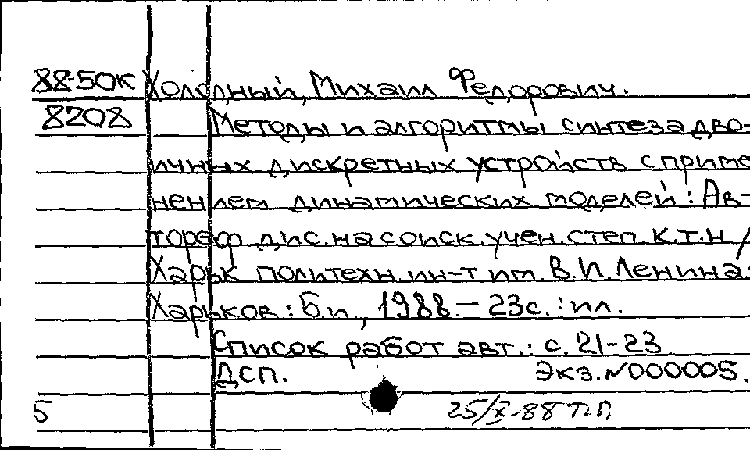 88-50к Холодный, Михаил Федорович.
8208 Методы и алгоритмы синтеза дво-
ичных дискретных устройств с приме
нением динамических моделей : Ав-
тореф. дис. на соиск. учен. степ. к.т.н /
Харьк политехн. ин-т им. В.И. Ленина.
Харьков : Б.и., 1988. - 23с. : ил.
Список работ авт. : с. 21-23
ДСП. Экз. N000005.
5 25/X-88 ТП